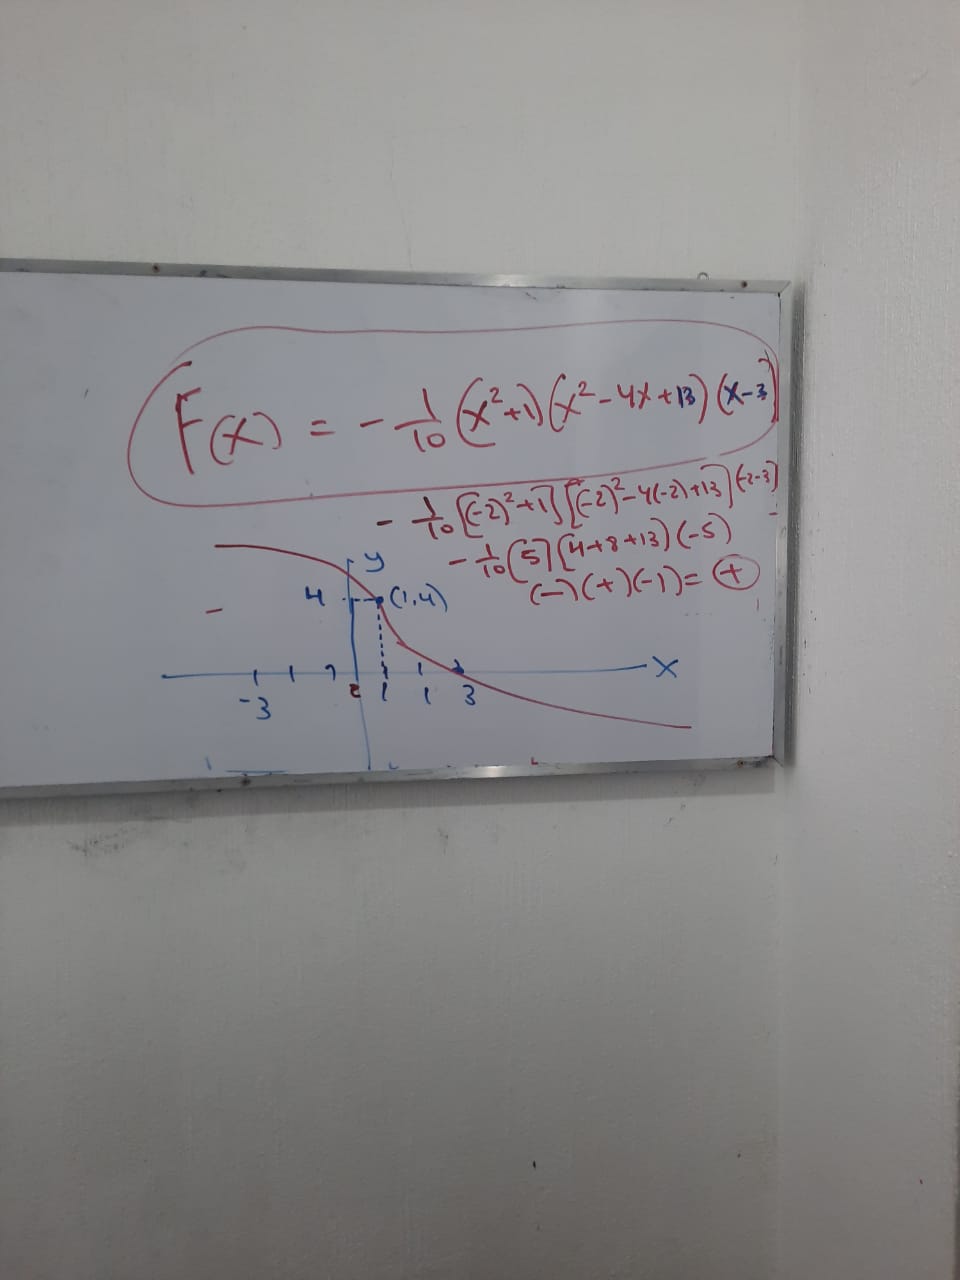 F(x) = - 1/10 (x²+1)(x²-4x+13)(x-3)
- 1/10 [(-2)²+1][(-2)²-4(-2)+13](-2-3)
- 1/10 (5)[4+8+13](-5)
(-)(+)(-1) = +
y
4 (1,4)
x
-3 1 1 3